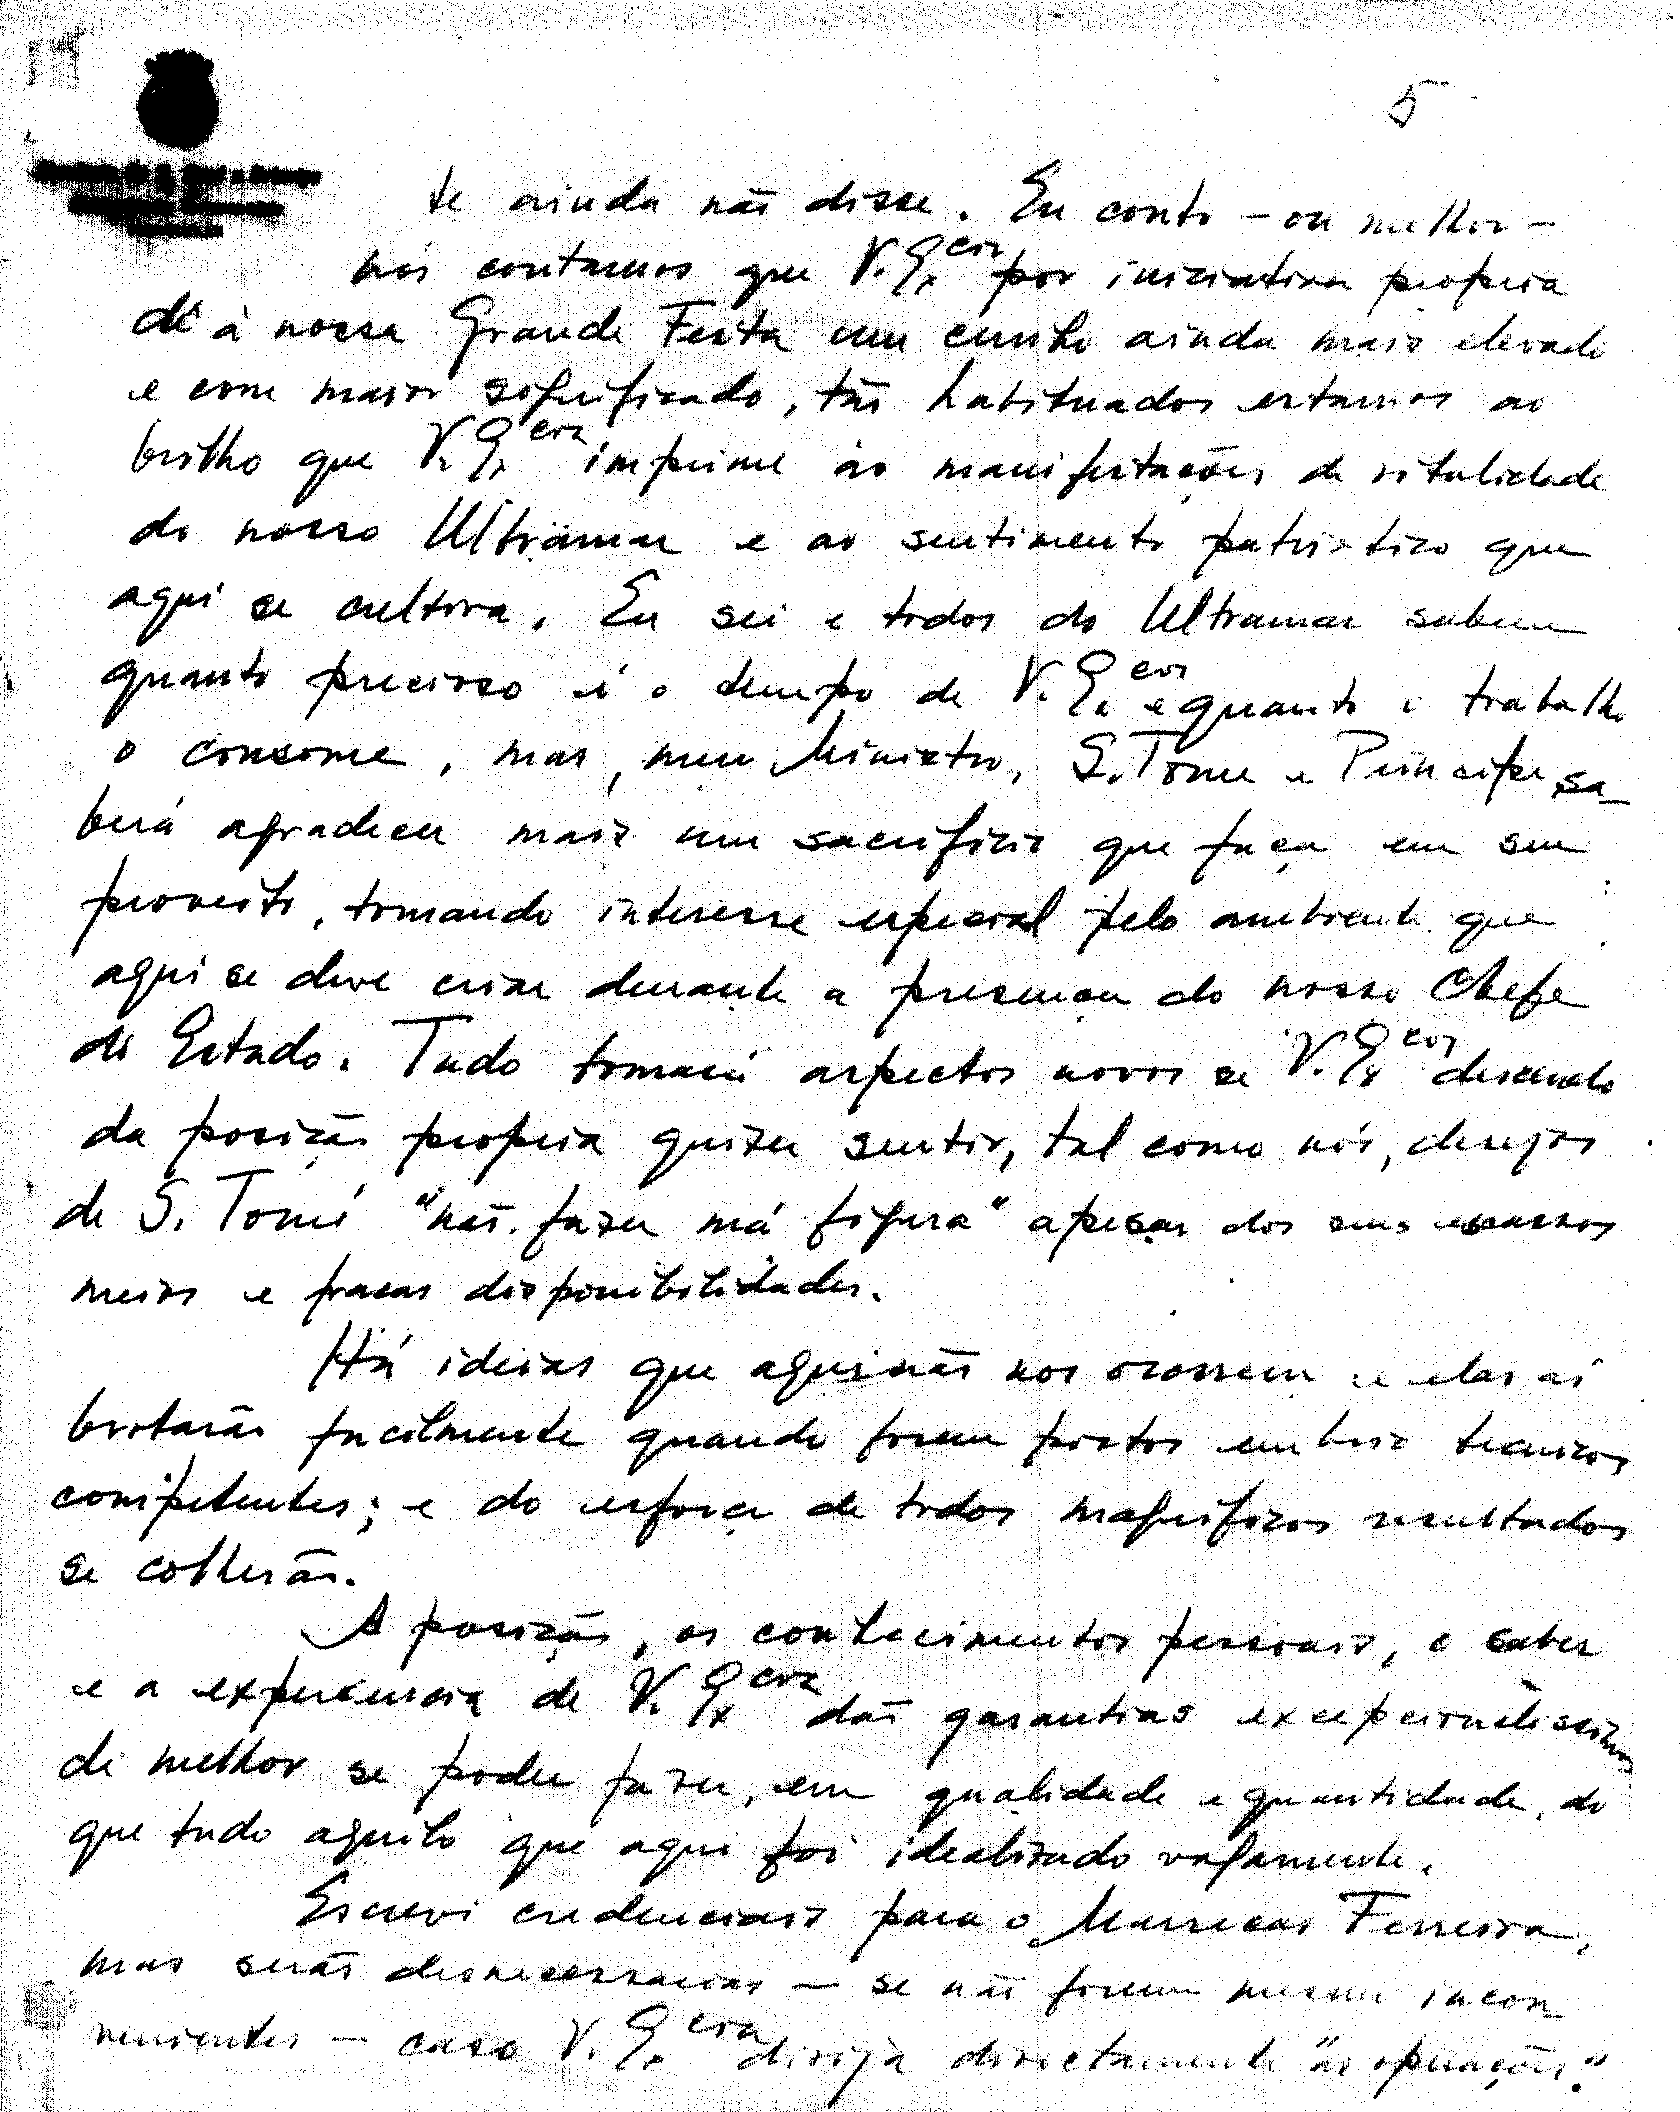 5
te ainda não disse. Eu conto - ou melhor -
nós contamos que V. Ex.cia por iniciativa propria
dê à nossa Grande Festa um cunho ainda mais elevado
e com maior significado, tão habituados estamos ao
brilho que V. Ex.cia imprime às manifestações de vitalidade
do nosso Ultramar e ao sentimento patriotico que
aqui se cultiva. Eu sei e todos do Ultramar sabem
quanto precioso é o tempo de V. Ex.cia e quanto o trabalho
o consome, mas, meu Ministro, S. Tome e Principe sa-
berá agradecer mais um sacrificio que faça em seu
proveito, tomando interesse especial pelo ambiente que
aqui se deve criar durante a presença do nosso Chefe
de Estado. Tudo tomará aspectos novos se V. Ex.cia descendo
da posição propria quizer sentir, tal como nós, desejos
de S. Tomé "não fazer má figura" apesar dos seus escassos
meios e fracas disponibilidades.
Há ideias que aqui não nos ocorrem e elas aí
brotarão facilmente quando forem postos em brio tecnicos
competentes; e do esforço de todos magnificos resultados
se colherão.
A posição, os conhecimentos pessoais, o saber
e a experiencia de V. Ex.cia dão garantias excepcionalissimas
de melhor se poder fazer, em qualidade e quantidade, do
que tudo aquilo que aqui foi idealizado vagamente.
Escrevi credenciais para o Marrecas Ferreira,
mas serão desnecessarias - se não forem mesmo incon
venientes - caso V. Ex.cia dirija directamente "as operações."